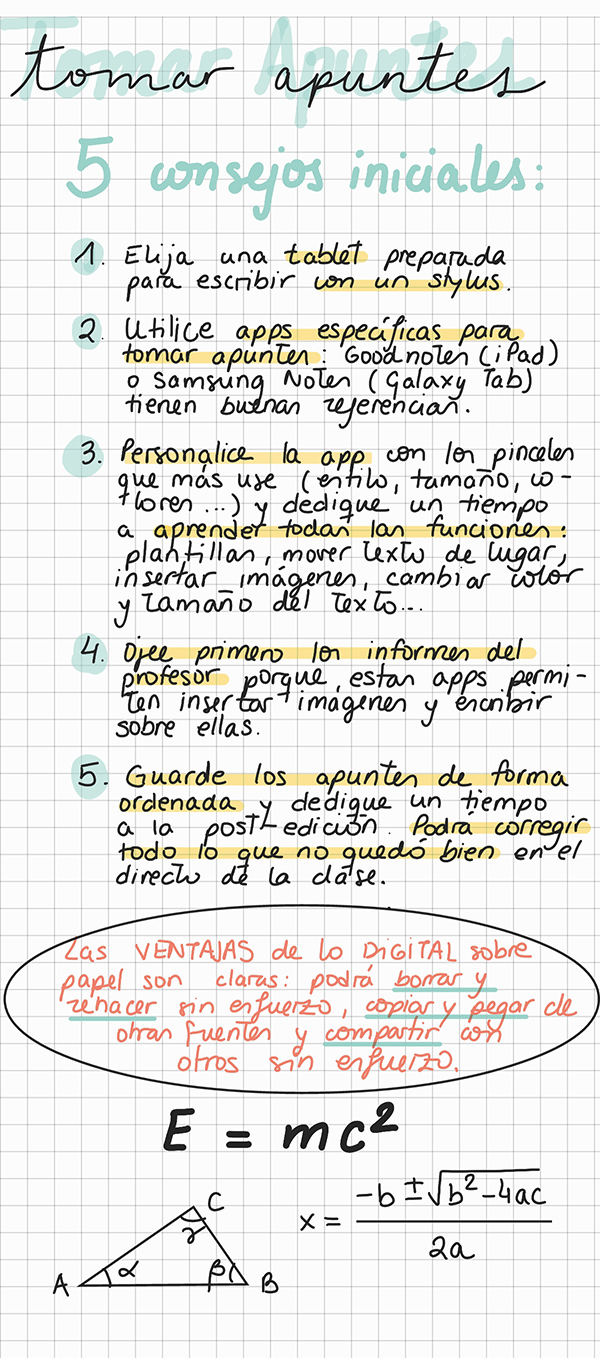 Tomar Apuntes
tomar apuntes
5 consejos iniciales:
1. Elija una tablet preparada
para escribir con un stylus.
2. Utilice apps específicas para
tomar apuntes: Goodnotes (iPad)
o Samsung Notes (Galaxy Tab)
tienen buenas referencias.
3. Personalice la app con los pinceles
que más use (estilo, tamaño, co-
lores...) y dedique un tiempo
a aprender todas las funciones:
plantillas, mover texto de lugar,
insertar imágenes, cambiar color
y tamaño del texto...
4. Ojee primero los informes del
profesor porque estas apps permi-
ten insertar imágenes y escribir
sobre ellas.
5. Guarde los apuntes de forma
ordenada y dedique un tiempo
a la post-edición. Podrá corregir
todo lo que no quedó bien en el
directo de la clase.
Las VENTAJAS de lo DIGITAL sobre
papel son claras: podrá borrar y
rehacer sin esfuerzo, copiar y pegar de
otras fuentes y compartir con
otros sin esfuerzo.
E = mc²
C
γ
A α β B
x = -b ± √b²-4ac
2a